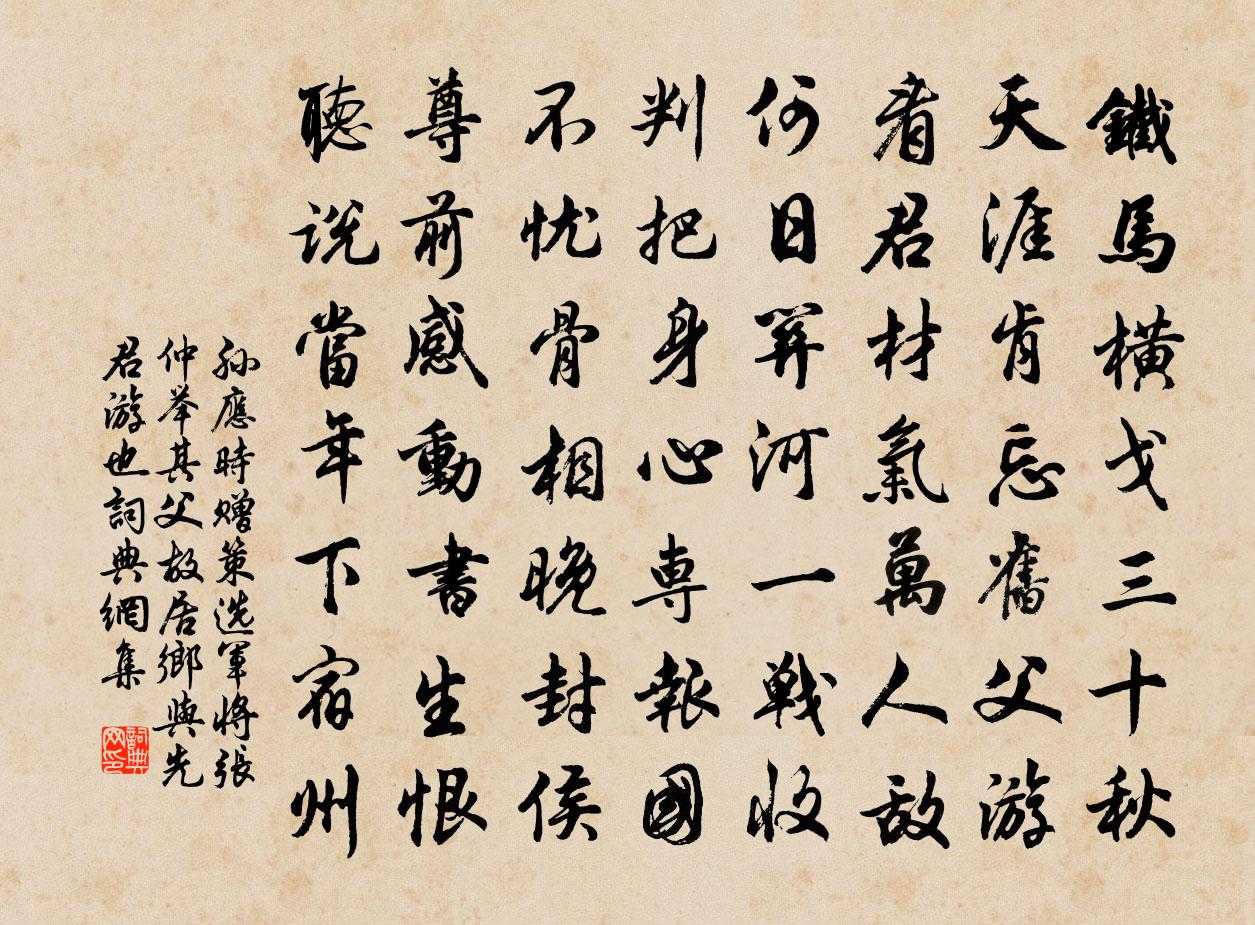 鐵馬橫戈三十秋
天涯肯忘舊父游
看君材氣萬人敵
何日關河一戰收
判把身心專報國
不忧骨相晚封侯
尊前感動書生恨
聽说當年下宿州
孙應時赠策选軍将張
仲举其父故居鄉與先
君游也詞典網集
詞典网印